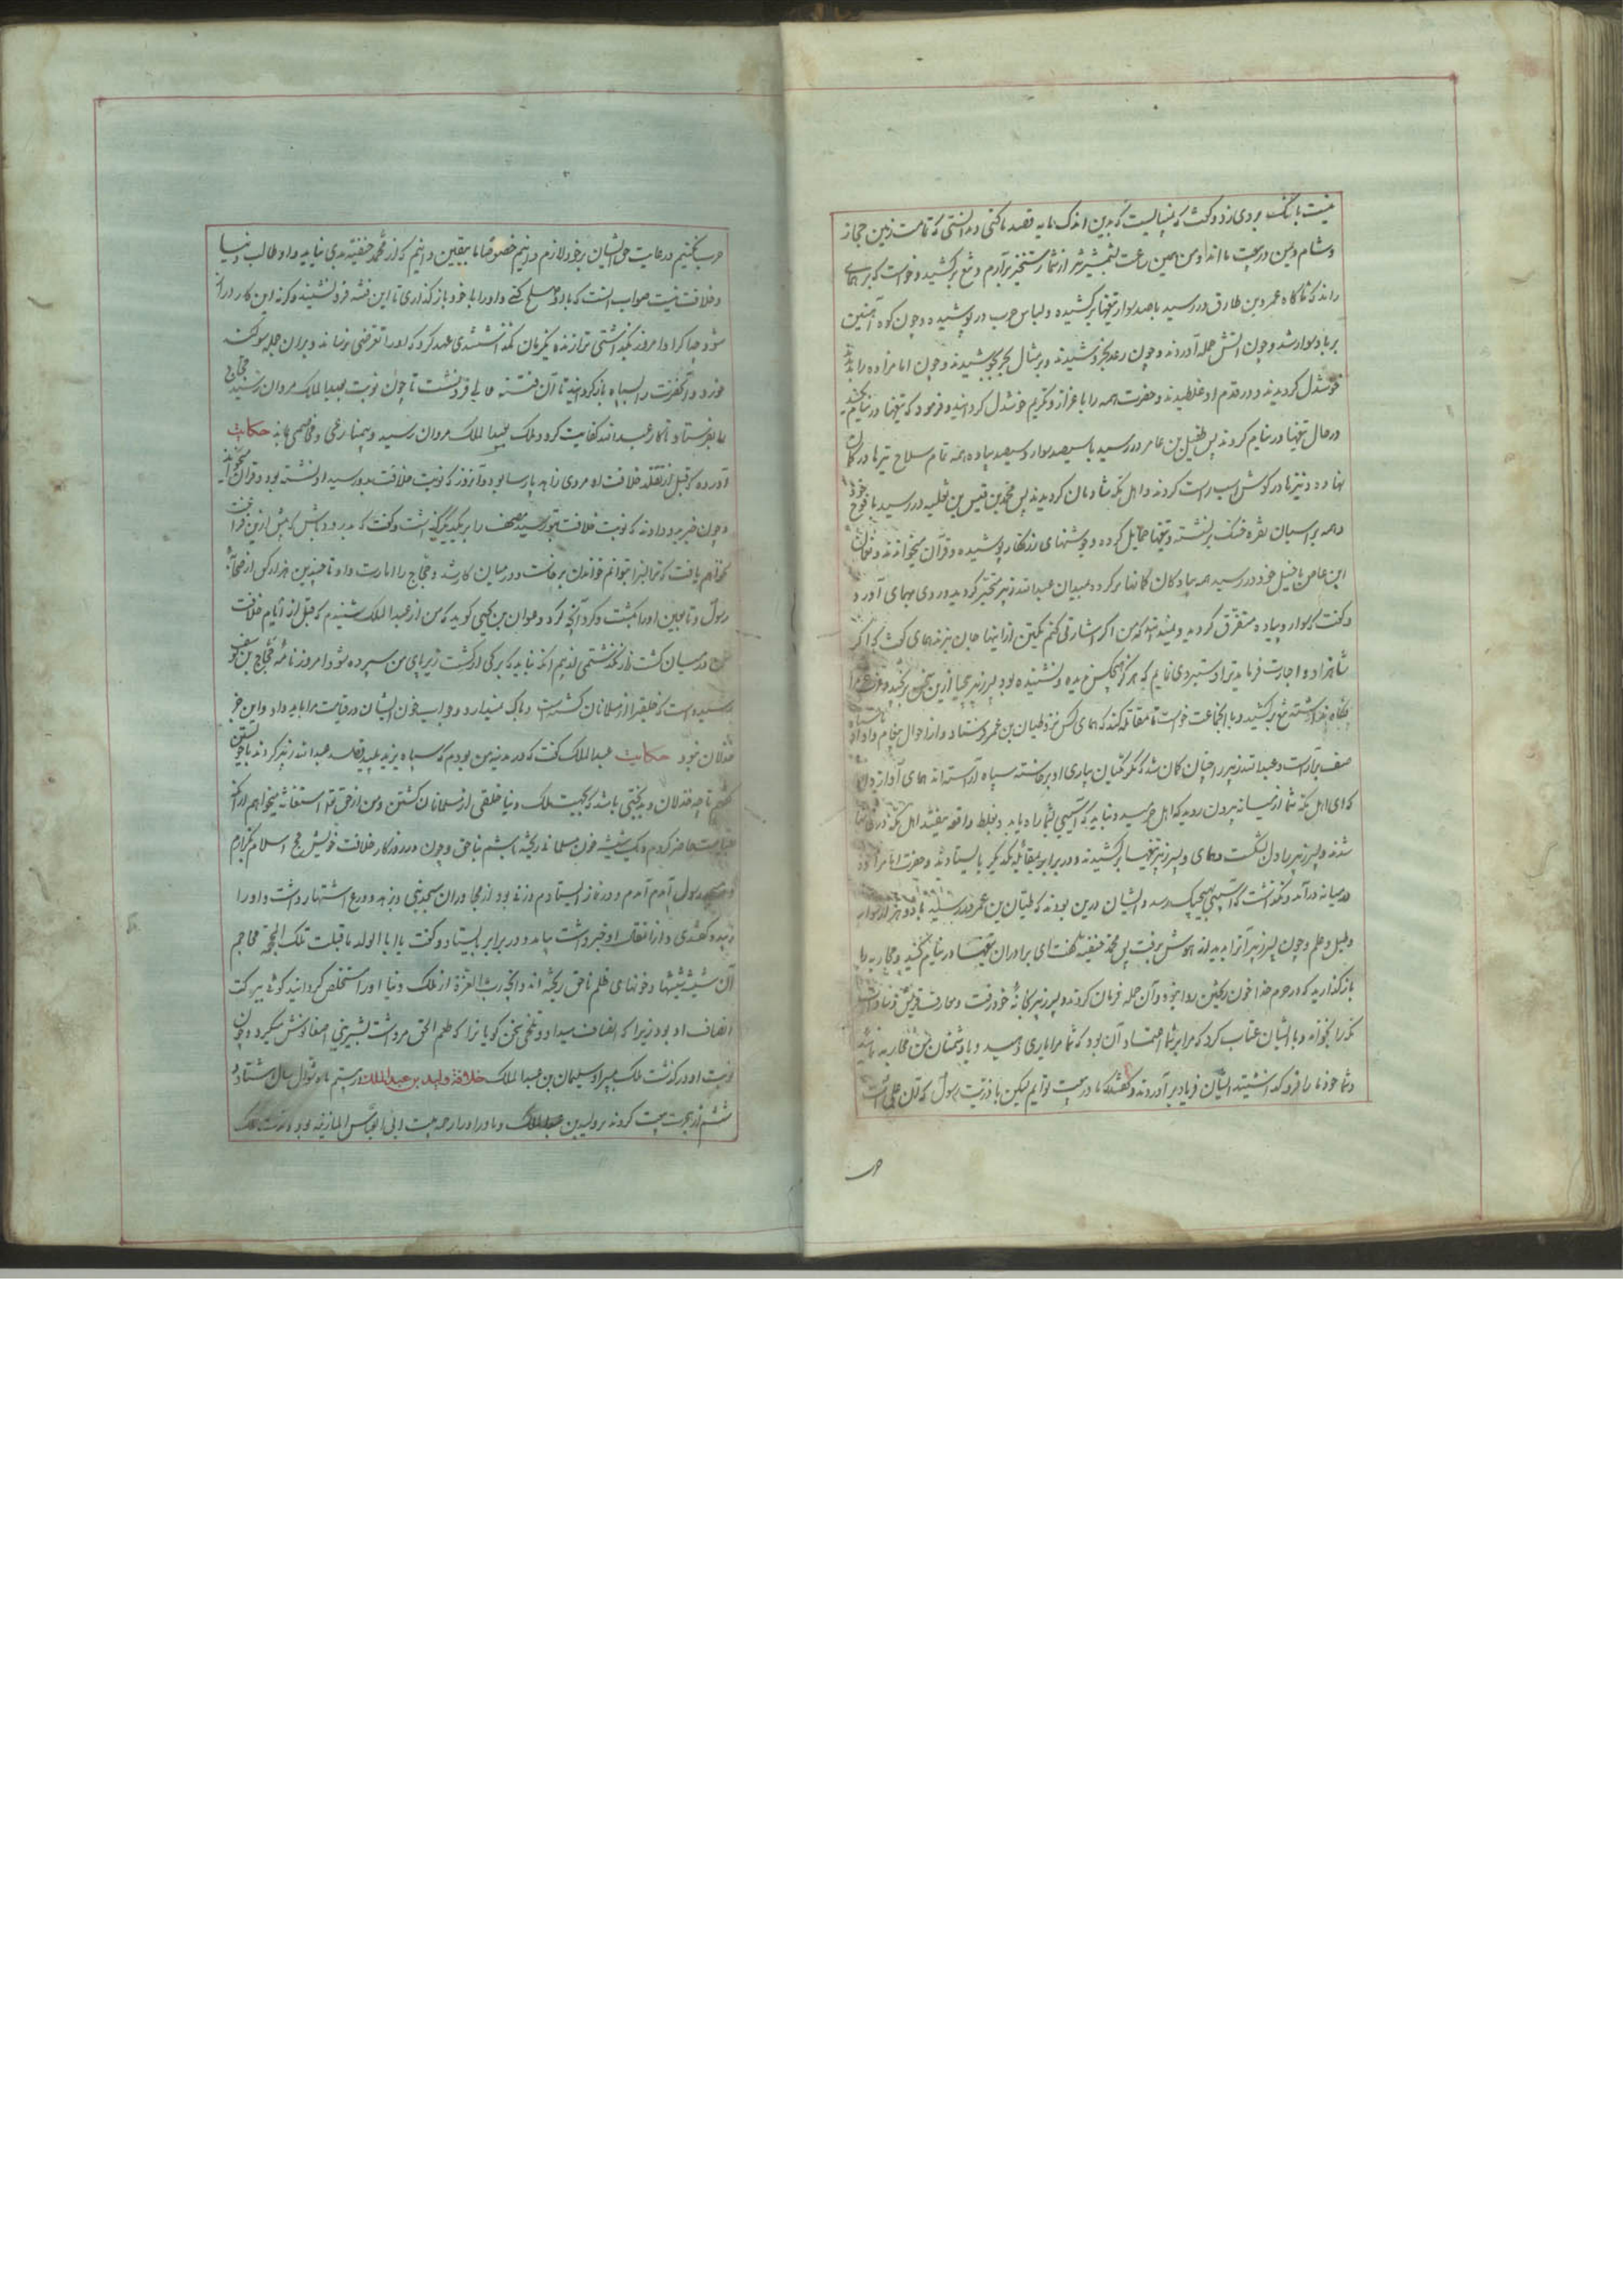 نیست بانگ بر وی زد و گفت که بدین اندک مایه قصد ما کنی و ندانستی که تمامت زمین حجاز
و شام و یمن در بیعت ما اند و من همین ساعت بشمشیر از شما رستخیز برآرم و تیغ برکشید و خواست که بر همای
راند که ناگاه عمرو بن طارق در رسید با صد سوار تیغها برکشیده و لباس حرب در پوشیده و چون کوه آهنین
بر باد سوار شد و چون آتش حمله آوردند و چون رعد بخروشیدند و بر مثال بحر بجوشیدند و چون امام زاده را بدیدند
خوشدل گردیدند و در قدم او غلطیدند و حضرت همه را باعزاز و تکریم خوشدل گردانید و فرمود که تیغها در نیام کنید
در حال تیغها در نیام کردند پس طفیل بن عامر در رسید با سیصد سوار و سیصد پیاده همه تمام سلاح تیرها در کمان
نهاده و نیزها در گوش اسب راست کردند و اهل مکه شادمان گردیدند پس محمد بن قیس بن ثعلبه در رسید با فوج خود
و همه بر اسبان نقره خنک برنشسته و تیغها حمایل کرده و جوشنهای زرنگار پوشیده و قرآن میخواندند و نعمان
ابن عاصم با خیل خود در رسید همه پیادگان کمانها بر کرده و بمیدان عبدالله زبیر متحیر گردید و روی بهمای آورد
و گفت که سوار و پیاده متفرق گردید و نمیدانید که من اگر اشارتی کنم یکتن از اینها جان نبرند همای گفت که اگر
شاهزاده اجابت فرماید ترا دستبردی نمایم که هرگز هیچکس ندیده و نشنیده بود پسر زبیر
نگاه نداشته تیغ برکشید و با جماعت خواست تا مقاتله کند که همای کس نزد ظبیان بن عمر فرستاد و از احوال پیغام داد
صف برآراست و عبدالله زبیر را چنان گمان شد که مگر مکیان بیاری او برخاسته سپاه آراسته اند همای آواز داد
که ای اهل مکه شما از میانه بیرون روید که اهل حرمید و نباید که آسیبی شما را دریابد و بغلط واقعه بیفتد اهل مکه
شدند و پسر زبیر را دل شکست و همای و پسر زبیر تیغها برکشیدند و در برابر بمقابله یکدیگر بایستادند و حضرت امام زاده
در میانه درآمد و نگذاشت که آسیبی بهیچیک رسد و ایشان درین بودند که ظبیان بن عمر در رسید با دو هزار سوار
و طبل و علم و چون پسر زبیر آنرا بدید از هوش برفت پس محمد حنفیه گفت ای برادران تیغها در نیام کنید و محاربه را
بازگذارید که در حرم خدا خون ریختن روا نبود و آن جمله فرمان کردند و پسر زبیر بخانه خود رفت و معارف قریش
مکه را بخواند و با ایشان عتاب کرد که مرا بر شما اعتماد آن بود که شما مرا یاری دهید و با دشمنان من محاربه نمائید
و شما خود ما را فرو گذاشتید ایشان فریاد برآوردند و گفتند که ما در بیعت توایم لیکن با ذریت رسول که
حرب
حرب نکنیم و رعایت حق ایشان بر خود لازم دانیم خصوصا ما بیقین دانیم که از محمد حنفیه بدی نیاید و او طالب دنیا
و خلافت نیست صواب آنست که با او صلح کنی و او را با خود بازگذاری تا این فتنه فرو نشیند وگرنه این کار دراز
شود چه اگر او امروز بگذاشتی ترا زنده یکزمان نگذاشتندی عهد کرد که او را تعرضی نرساند و بر آن جمله سوگند
خورد و آنحضرت را سپاه بازگردانید تا آن فتنه فرو نشست تا چون نوبت بعبدالملک مروان رسید حجاج
را بفرستاد تا کار عبدالله کفایت کرد و ملک بعبدالملک مروان رسید حکایت
آورده که قبل از تقلد خلافت او مردی زاهد پارسا بود و آنروز که نوبت خلافت بدو رسید او نشسته بود و قرآن میخواند
و چون خبر بدو دادند که نوبت خلافت بتو رسید مصحف را بر یکدیگر گذاشت و گفت که بدرود باش که بیش ازین فراغت
نخواهم یافت که ترا بتوانم خواندن برخاست و در میان کار شد و حجاج را امارت داد تا چندین هزار کس از صحابه
رسول و تابعین او را بکشت و کرد آنچه کرد و مروان بن یحیی گوید که من از عبدالملک شنیدم که قبل از ایام خلافت
من در میان کشت زار نگذشتمی از بیم آنکه نباید که برگی از کشت زیر پای من سپرده شود امروز نامه حجاج بن یوسف
رسیده است که خلیفه را از مسلمانان کشته است و باک نمیدارد و جواب خون ایشان در قیامت مرا باید داد و این جز
خذلان نبود حکایت عبدالملک گفت که در مدینه من بودم که سپاه یزید بقصد عبدالله زبیر گرد آمد با خویشتن
گفتم تا چه خذلان و بدبختی باشد که بجهت ملک دنیا خلقی از مسلمانان کشتن و من از حق تعالی استغاثه میخواهم از آنکه
قیامت حاضر گردم و یک شیشه خون مسلمانی ریخته باشم بناحق و چون در روزگار خلافت خویش حج اسلام بگزارم
و بمسجد رسول آمدم و در نماز ایستادم و زنی بود از مجاوران مسجد نبی و بزهد و ورع اشتهار داشت و او را
دیده گفتندی و از انفاس او خبر داشت بیامد و در برابر بایستاد و گفت یا ابا الولد ما قبلت تلک الحجة محاجم
آن شیشها و خونهای ظلم ناحق ریخته اند و آنچه رب العزة از ملک دنیا او را مستخلص گردانید گوش بر گفت
انصاف او بود زیرا که انصاف میداد و تلخی سخن گویانرا که طعم الحق مر داشت بشیرینی اصغا نوش میکرد و چون
نوبت او درگذشت ملک بپسر او سلیمان بن عبدالملک خلافة ولید بن عبدالملک در بیستم ماه شوال سال هشتاد و
ششم از هجرت بیعت کردند بر ولید بن عبدالملک و مادر او را